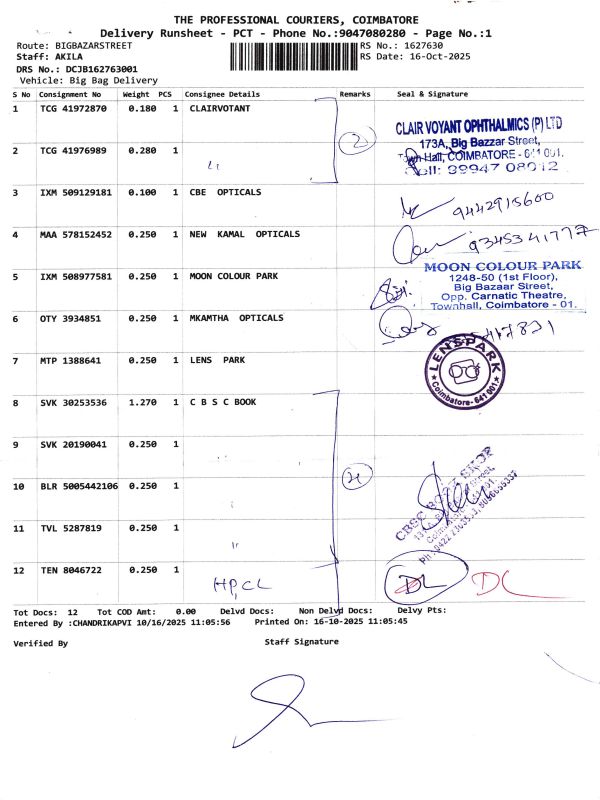 THE PROFESSIONAL COURIERS, COIMBATORE
Delivery Runsheet - PCT - Phone No.:9047080280 - Page No.:1
Route: BIGBAZARSTREET RS No.: 1627630
Staff: AKILA RS Date: 16-Oct-2025
DRS No.: DCJB162763001
Vehicle: Big Bag Delivery
S No Consignment No Weight PCS Consignee Details Remarks Seal & Signature
1 TCG 41972870 0.180 1 CLAIRVOTANT
2
CLAIR VOYANT OPHTHALMICS (P) LTD
173A, Big Bazzar Street,
Town Hall, COIMBATORE - 641 001.
Cell: 39947 08012
2 TCG 41976989 0.280 1
3 IXM 509129181 0.100 1 CBE OPTICALS
9442915600
4 MAA 578152452 0.250 1 NEW KAMAL OPTICALS
9345341777
5 IXM 508977581 0.250 1 MOON COLOUR PARK
MOON COLOUR PARK
1248-50 (1st Floor),
Big Bazaar Street,
Opp. Carnatic Theatre,
Townhall, Coimbatore - 01.
6 OTY 3934851 0.250 1 MKAMTHA OPTICALS
7 MTP 1388641 0.250 1 LENS PARK
LENSPARK
Coimbatore-641 001
8 SVK 30253536 1.270 1 C B S C BOOK
9 SVK 20190041 0.250 1
10 BLR 5005442106 0.250 1
11 TVL 5287819 0.250 1
12 TEN 8046722 0.250 1
HPCL
DL
Tot Docs: 12 Tot COD Amt: 0.00 Delvd Docs: Non Delvd Docs: Delvy Pts:
Entered By :CHANDRIKAPVI 10/16/2025 11:05:56 Printed On: 16-10-2025 11:05:45
Verified By Staff Signature